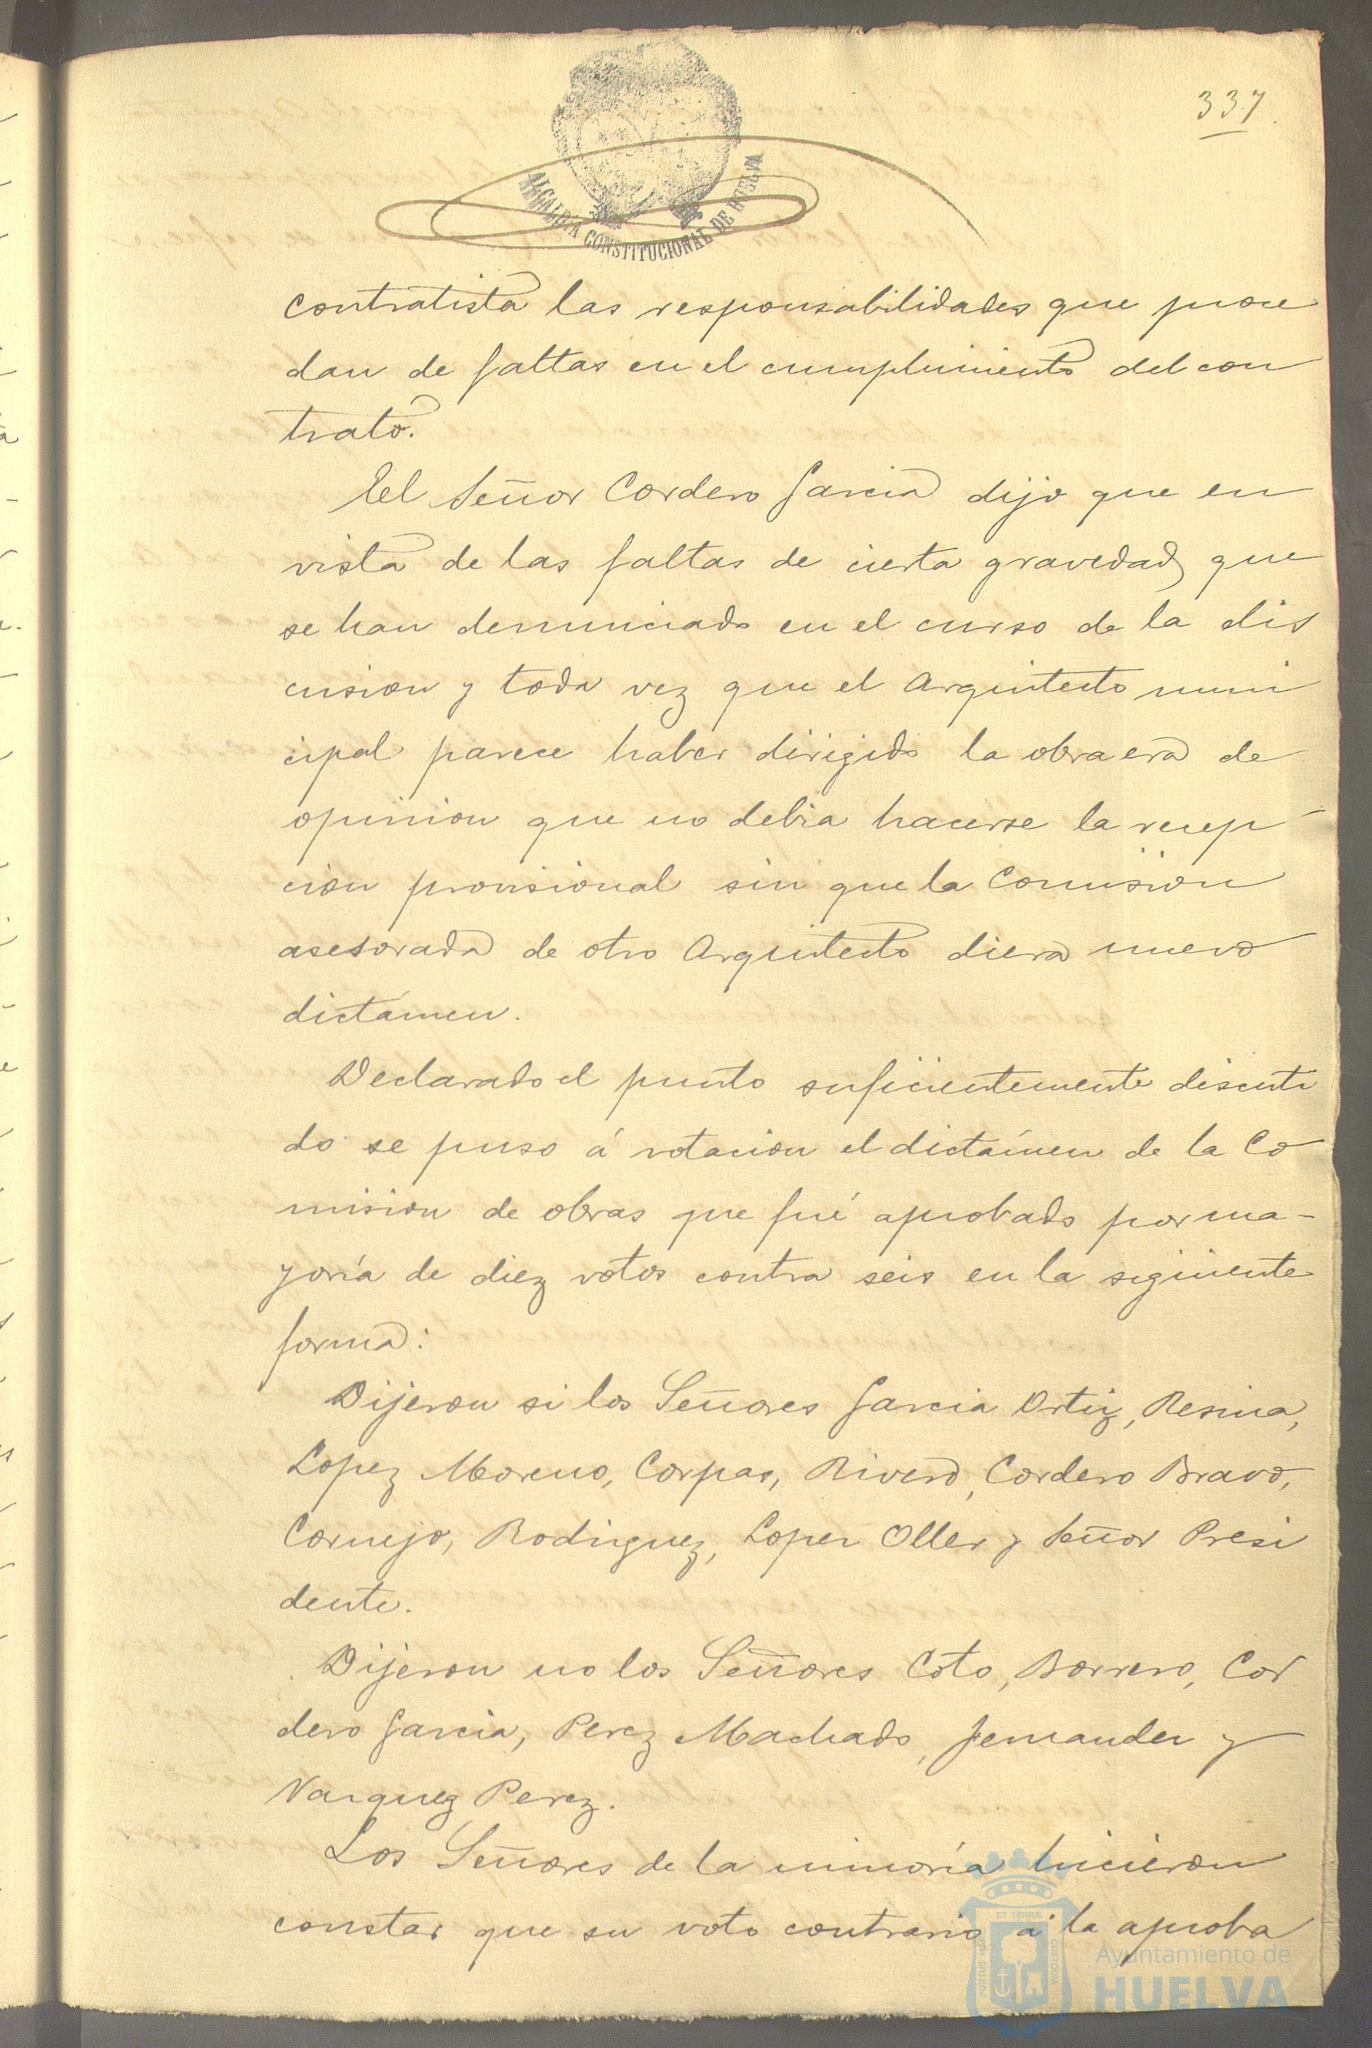 337
ALCALDÍA CONSTITUCIONAL DE HUELVA
contratista las responsabilidades que proce
dan de faltas en el cumplimiento del con
trato.
El Señor Cordero Garcia dijo que en
vista de las faltas de cierta gravedad que
se han denunciado en el curso de la dis
cusion y toda vez que el Arquitecto muni
cipal parece haber dirigido la obra era de
opinion que no debia hacerse la recep-
cion provisional sin que la Comision
asesorada de otro Arquitecto diera nuevo
dictámen.
Declarado el punto suficientemente discuti
do se puso á votacion el dictámen de la Co
mision de obras que fué aprobado por ma-
yoría de diez votos contra seis en la siguiente
forma:
Dijeron si los Señores Garcia Ortiz, Resina,
Lopez Moreno, Corpas, Rivero, Cordero Bravo,
Cornejo, Rodriguez, Lopez Oller y Señor Presi
dente.
Dijeron no los Señores Coto, Borrero, Cor
dero Garcia, Perez Machado, Fernandez y
Vazquez Perez.
Los Señores de la minoría hicieron
constar que su voto contrario á la aproba
ET TERRÆ
PORTUS MARIS
CUSTODIA
Ayuntamiento de
HUELVA